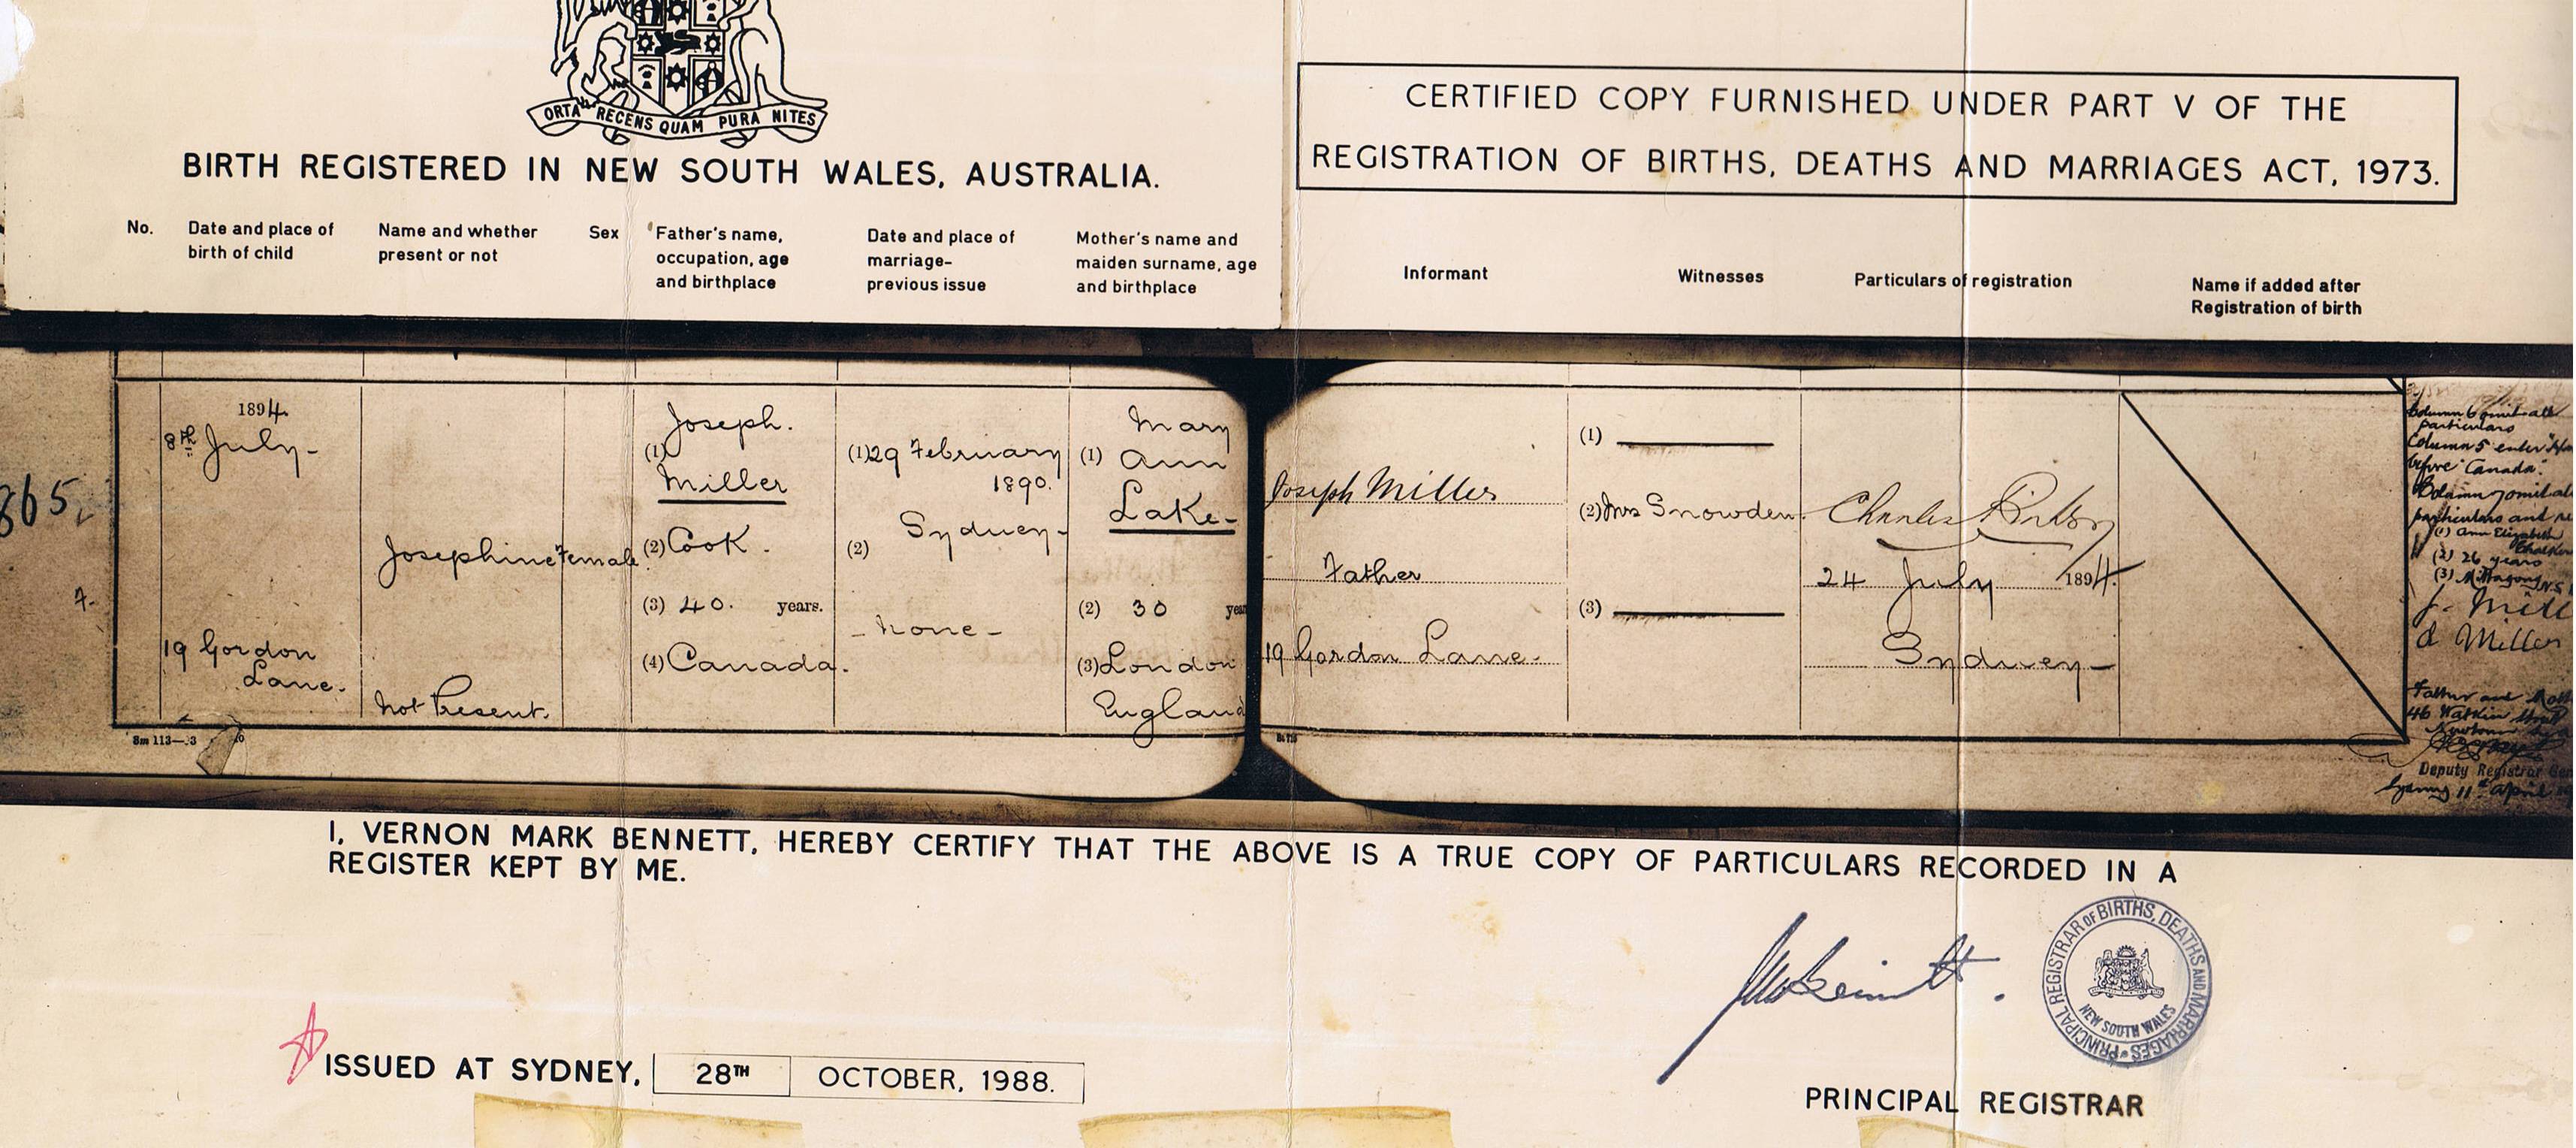 ORTA RECENS QUAM PURA NITES
BIRTH REGISTERED IN NEW SOUTH WALES, AUSTRALIA.
CERTIFIED COPY FURNISHED UNDER PART V OF THE
REGISTRATION OF BIRTHS, DEATHS AND MARRIAGES ACT, 1973.
No.
Date and place of
birth of child
Name and whether
present or not
Sex
Father's name,
occupation, age
and birthplace
Date and place of
marriage-
previous issue
Mother's name and
maiden surname, age
and birthplace
Informant
Witnesses
Particulars of registration
Name if added after
Registration of birth
865
7.
1894.
8th July-
19 Gordon
Lane.
Josephine
not Present.
Female
Joseph.
(1)
Miller
(2) Cook.
(3) 40. years.
(4) Canada.
(1) 29 February
1890.
(2) Sydney-
- none -
Mary
(1) Ann
Lake-
(2) 30
(3) London
England
Joseph Miller
Father
19 Gordon Lane.
(1)
(2) Mrs Snowden.
(3)
Charles
24 July 1894.
Sydney-
Column 6 omit all
particulars
Column 5 enter
before "Canada".
Column 7 omit all
particulars and
(1) Ann Elizabeth
(2) 26 years
(3) Mittagong N.S.
J. Mill
A Miller
Father and
46 Watkin Street
Newtown
Deputy Registrar
Sydney 11th April
8m 113—
I, VERNON MARK BENNETT, HEREBY CERTIFY THAT THE ABOVE IS A TRUE COPY OF PARTICULARS RECORDED IN A
REGISTER KEPT BY ME.
PRINCIPAL REGISTRAR OF BIRTHS, DEATHS AND MARRIAGES
NEW SOUTH WALES
ISSUED AT SYDNEY, 28TH OCTOBER, 1988.
PRINCIPAL REGISTRAR